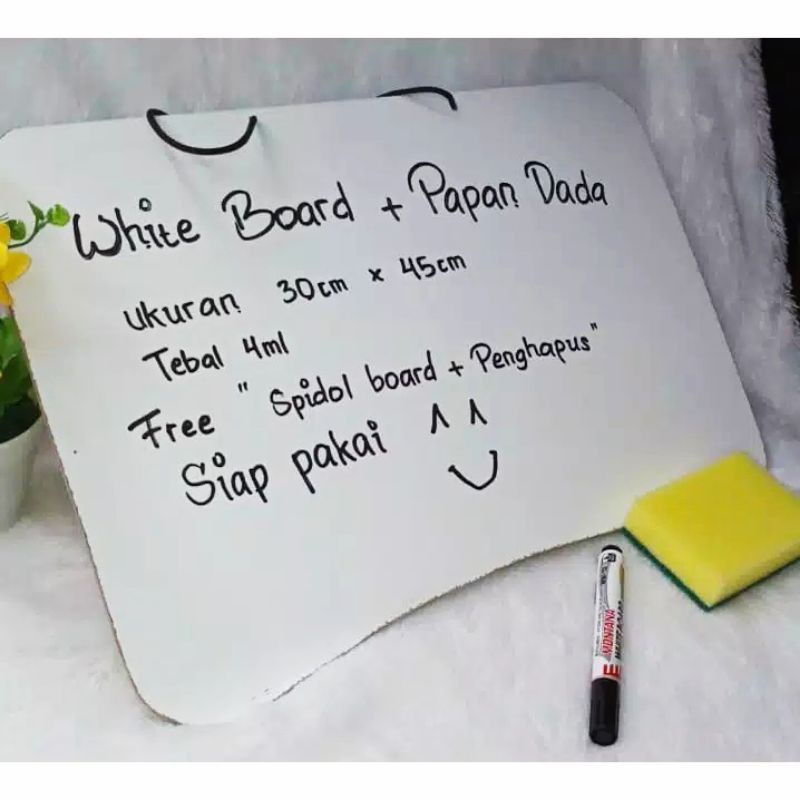 White Board + Papan Dada
ukuran 30cm x 45cm
Tebal 4ml
Free " Spidol board + Penghapus"
Siap pakai ^ ^
MONTANA